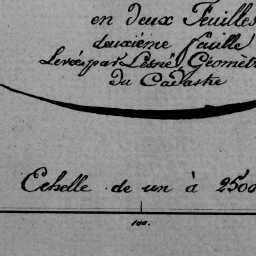 en deux Feuilles
deuxième feuille
Levées par Lesné, Géomètr
du Cadastre
Echelle de un à 2500
100.